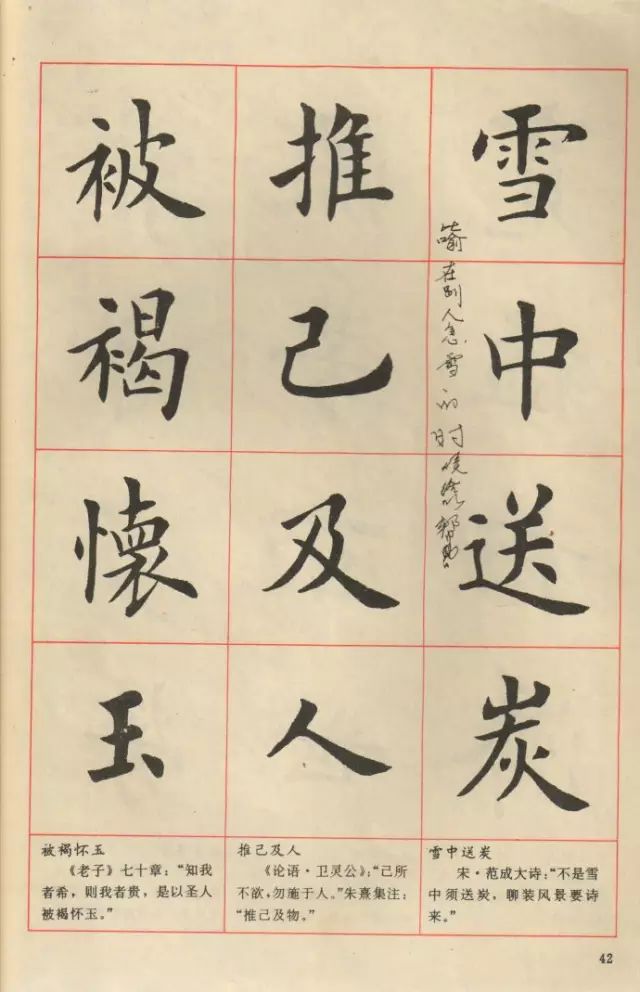 雪中送炭
喻在别人急
的时
帮助
推己及人
被褐懷玉
被褐怀玉
《老子》七十章：“知我
者希，则我者贵，是以圣人
被褐怀玉。”
推己及人
《论语·卫灵公》：“己所
不欲，勿施于人。”朱熹集注：
“推己及物。”
雪中送炭
宋·范成大诗：“不是雪
中须送炭，聊装风景要诗
来。”
42